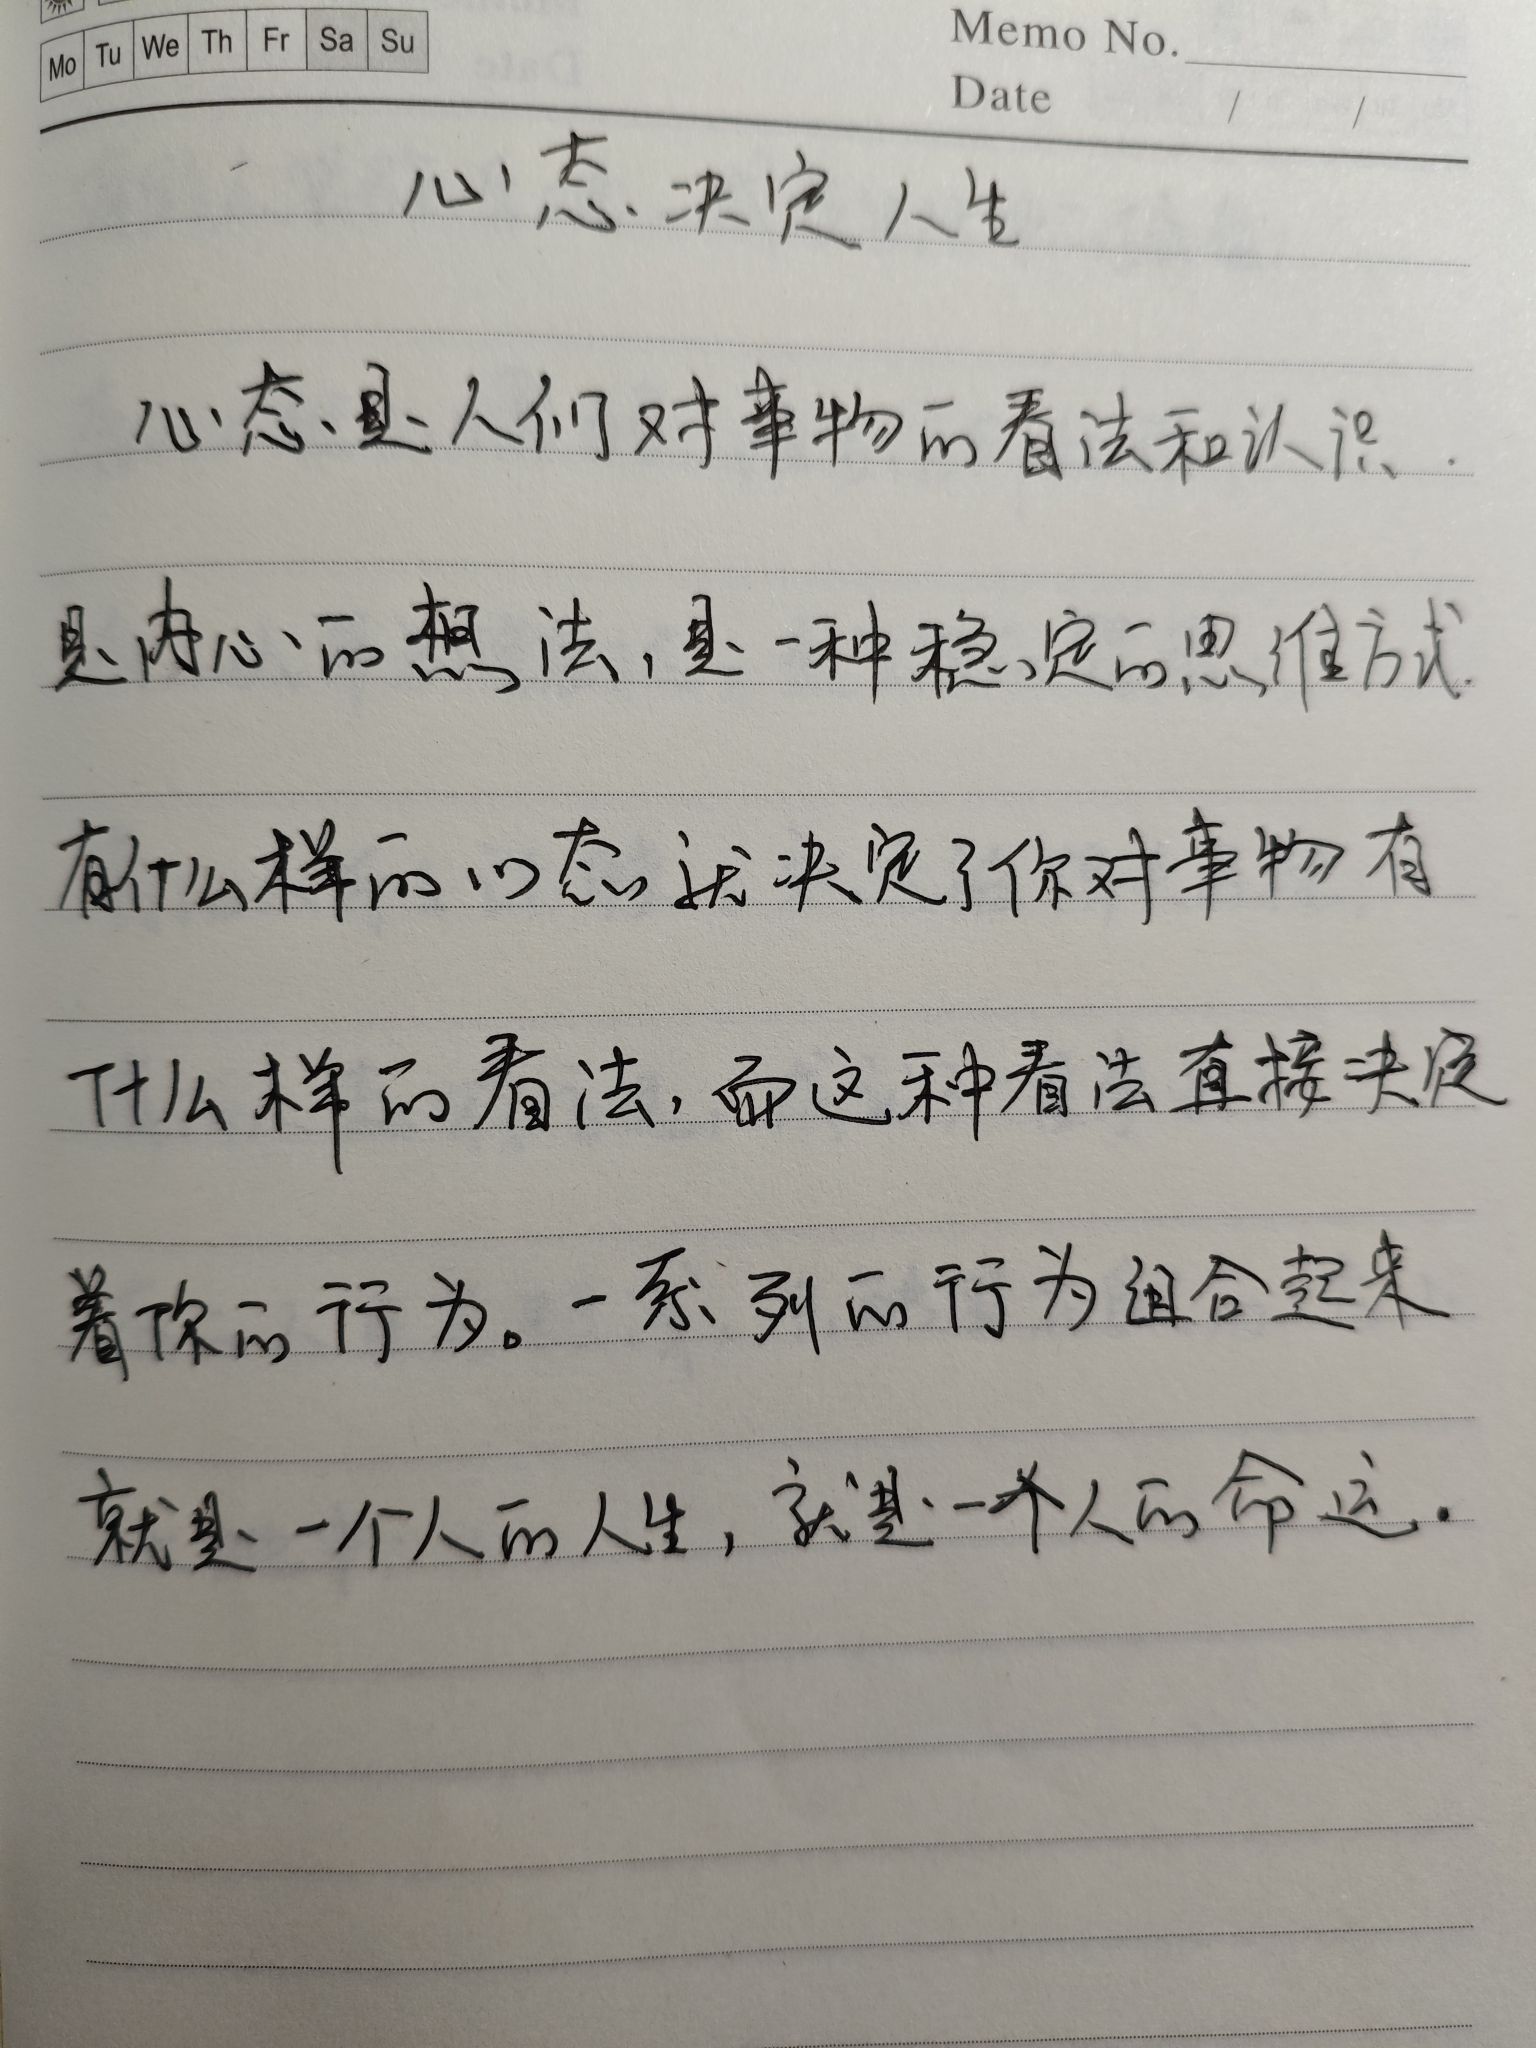 Mo Tu We Th Fr Sa Su
Memo No.
Date / /
心态决定人生
心态是人们对事物的看法和认识.
是内心的想法,是一种稳定的思维方式.
有什么样的心态就决定了你对事物有
什么样的看法,而这种看法直接决定
着你的行为。一系列的行为组合起来
就是一个人的人生,就是一个人的命运.